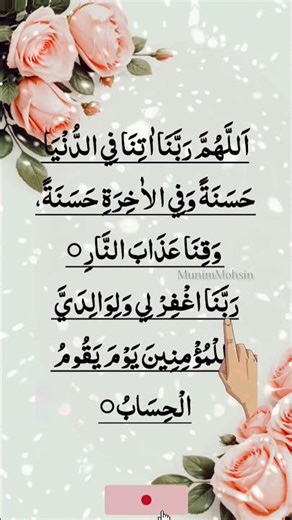 اَللَّهُمَّ رَبَّنَا اٰتِنَا فِي الدُّنْيَا
حَسَنَةً وَفِي الْاٰخِرَةِ حَسَنَةً،
وَقِنَا عَذَابَ النَّارِ ○
MunimMohsin
رَبَّنَا اغْفِرْ لِي وَلِوَالِدَيَّ
لْمُؤْمِنِينَ يَوْمَ يَقُومُ
الْحِسَابُ ○